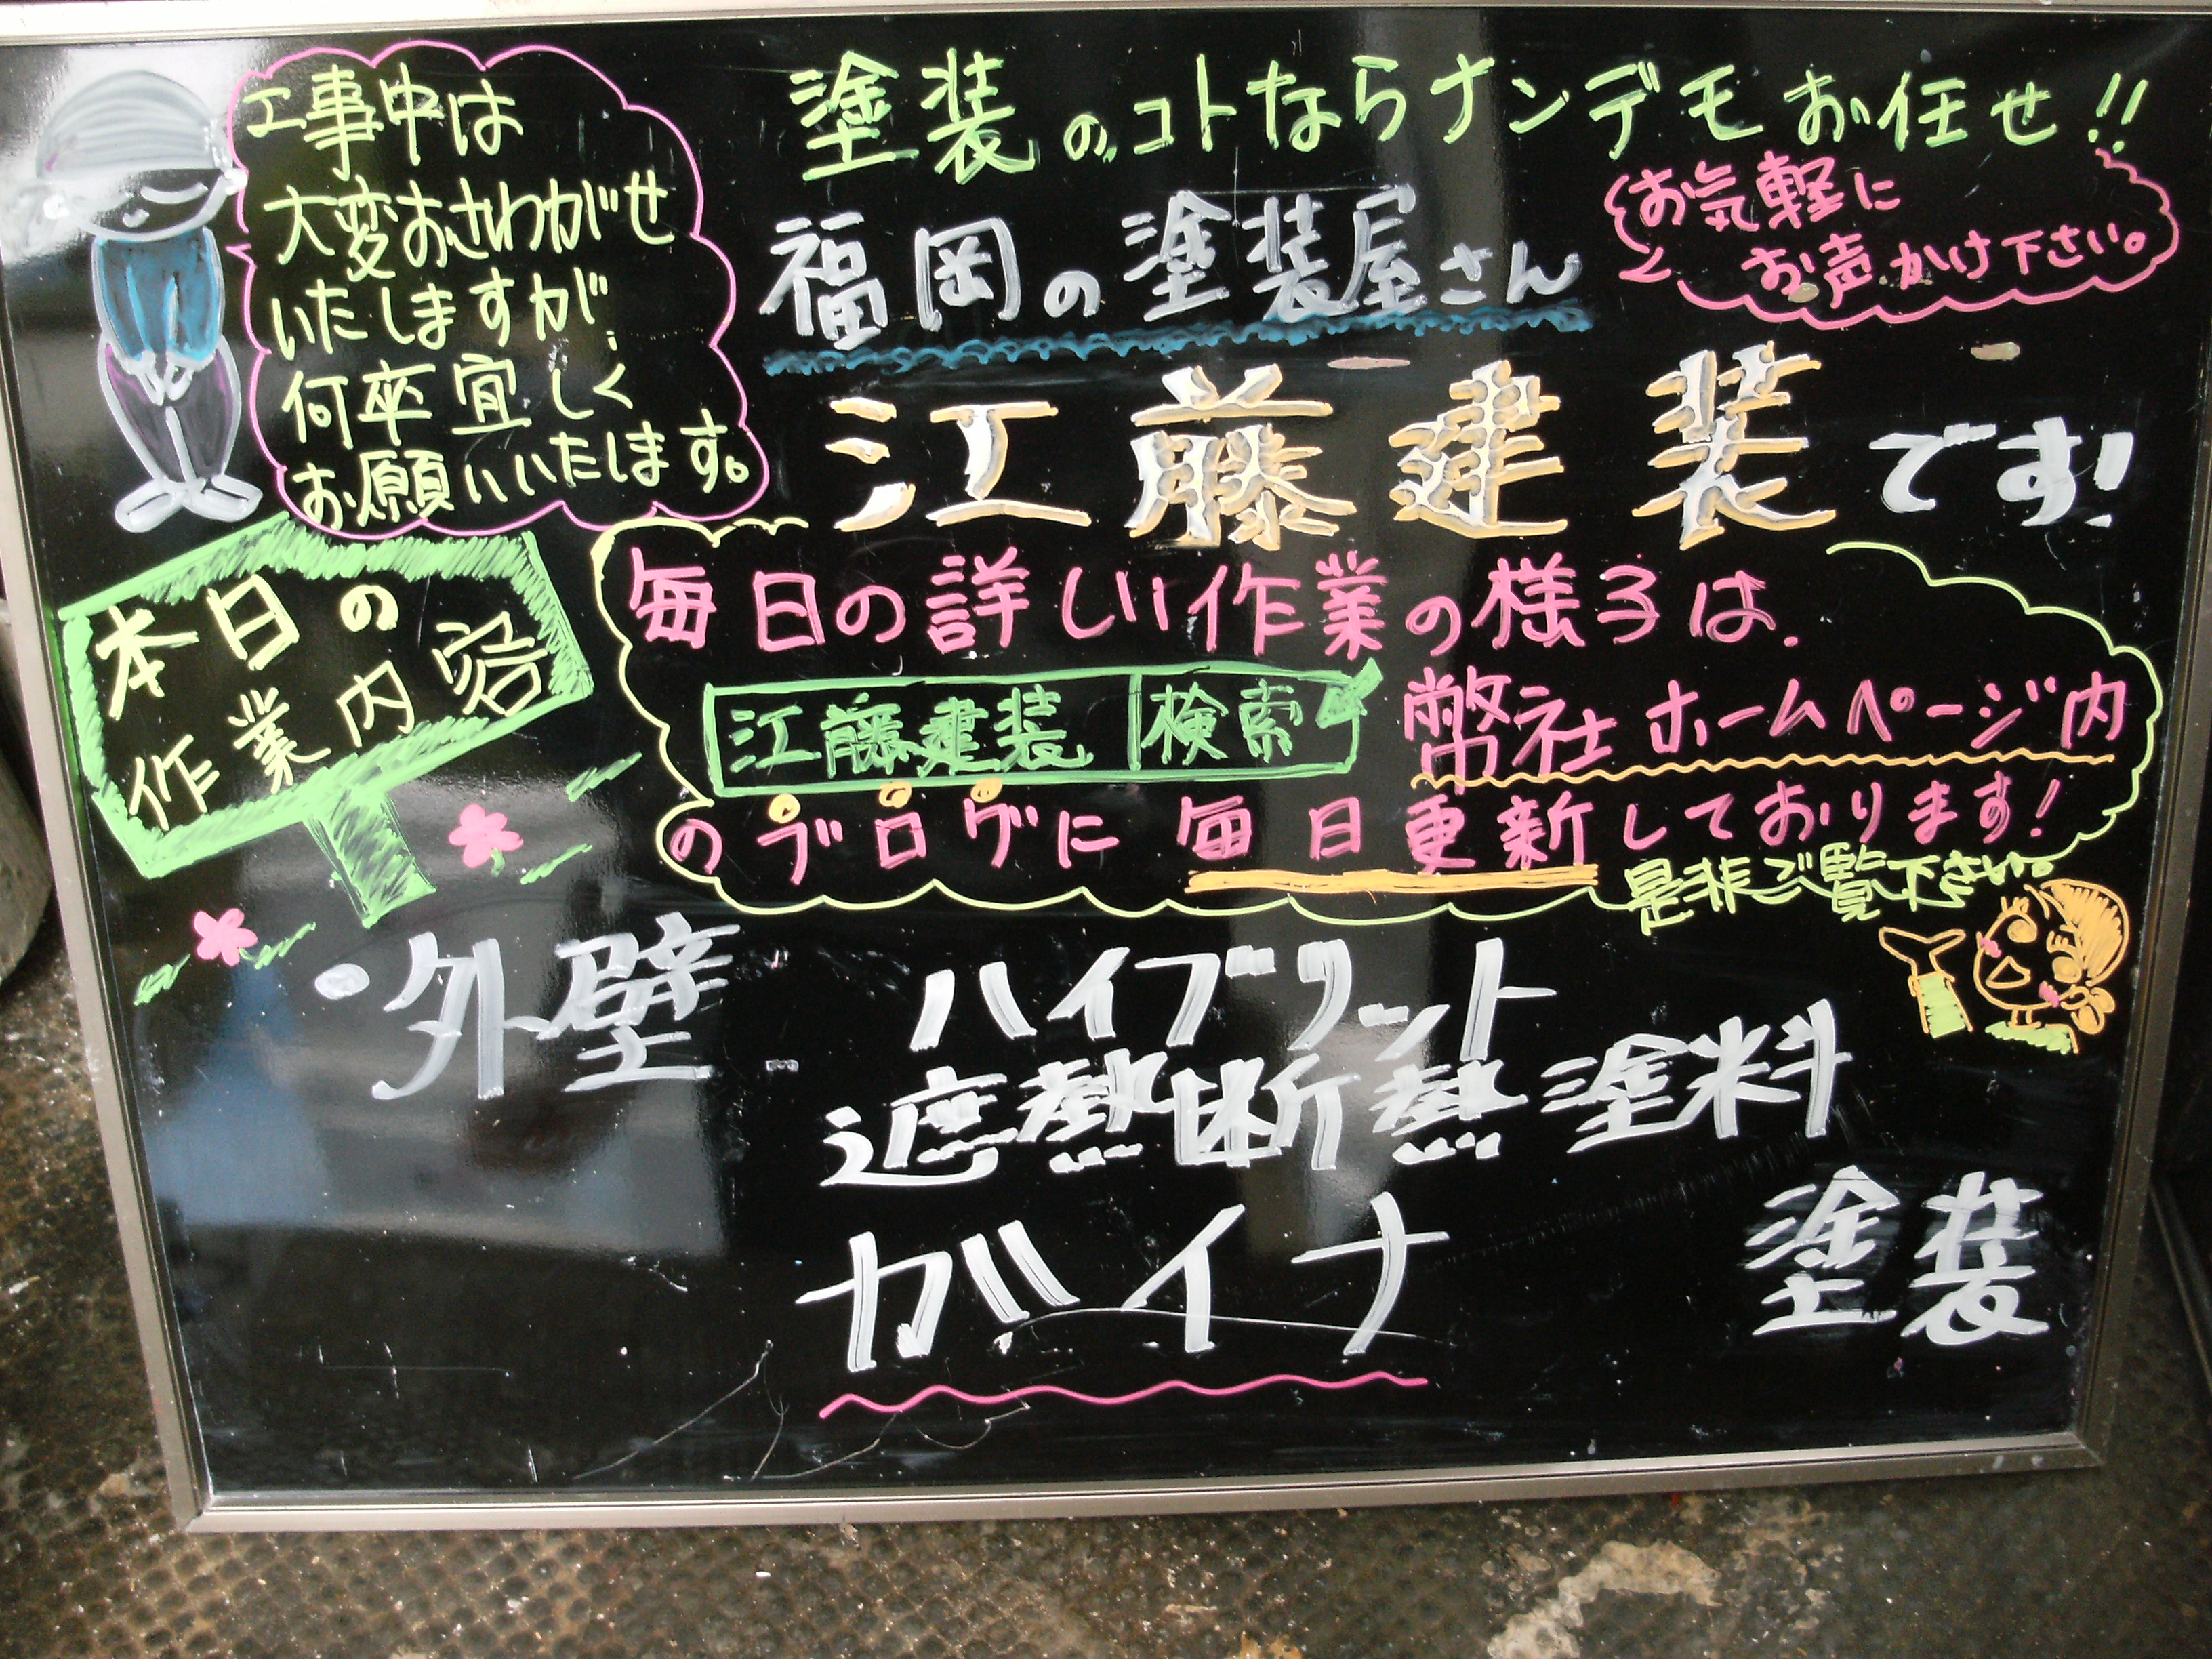 工事中は
大変おさわがせ
いたしますが、
何卒宜しく
お願いいたします。
塗装のコトならナンデモお任せ!!
お気軽に
お声かけ下さい。
福岡の塗装屋さん
江藤建装です!
本日の
作業内容
毎日の詳しい作業の様子は、
江藤建装 検索 弊社ホームページ内
のブログに毎日更新しております!
是非ご覧下さい。
・外壁 ハイブリット
遮熱断熱塗料
ガイナ 塗装